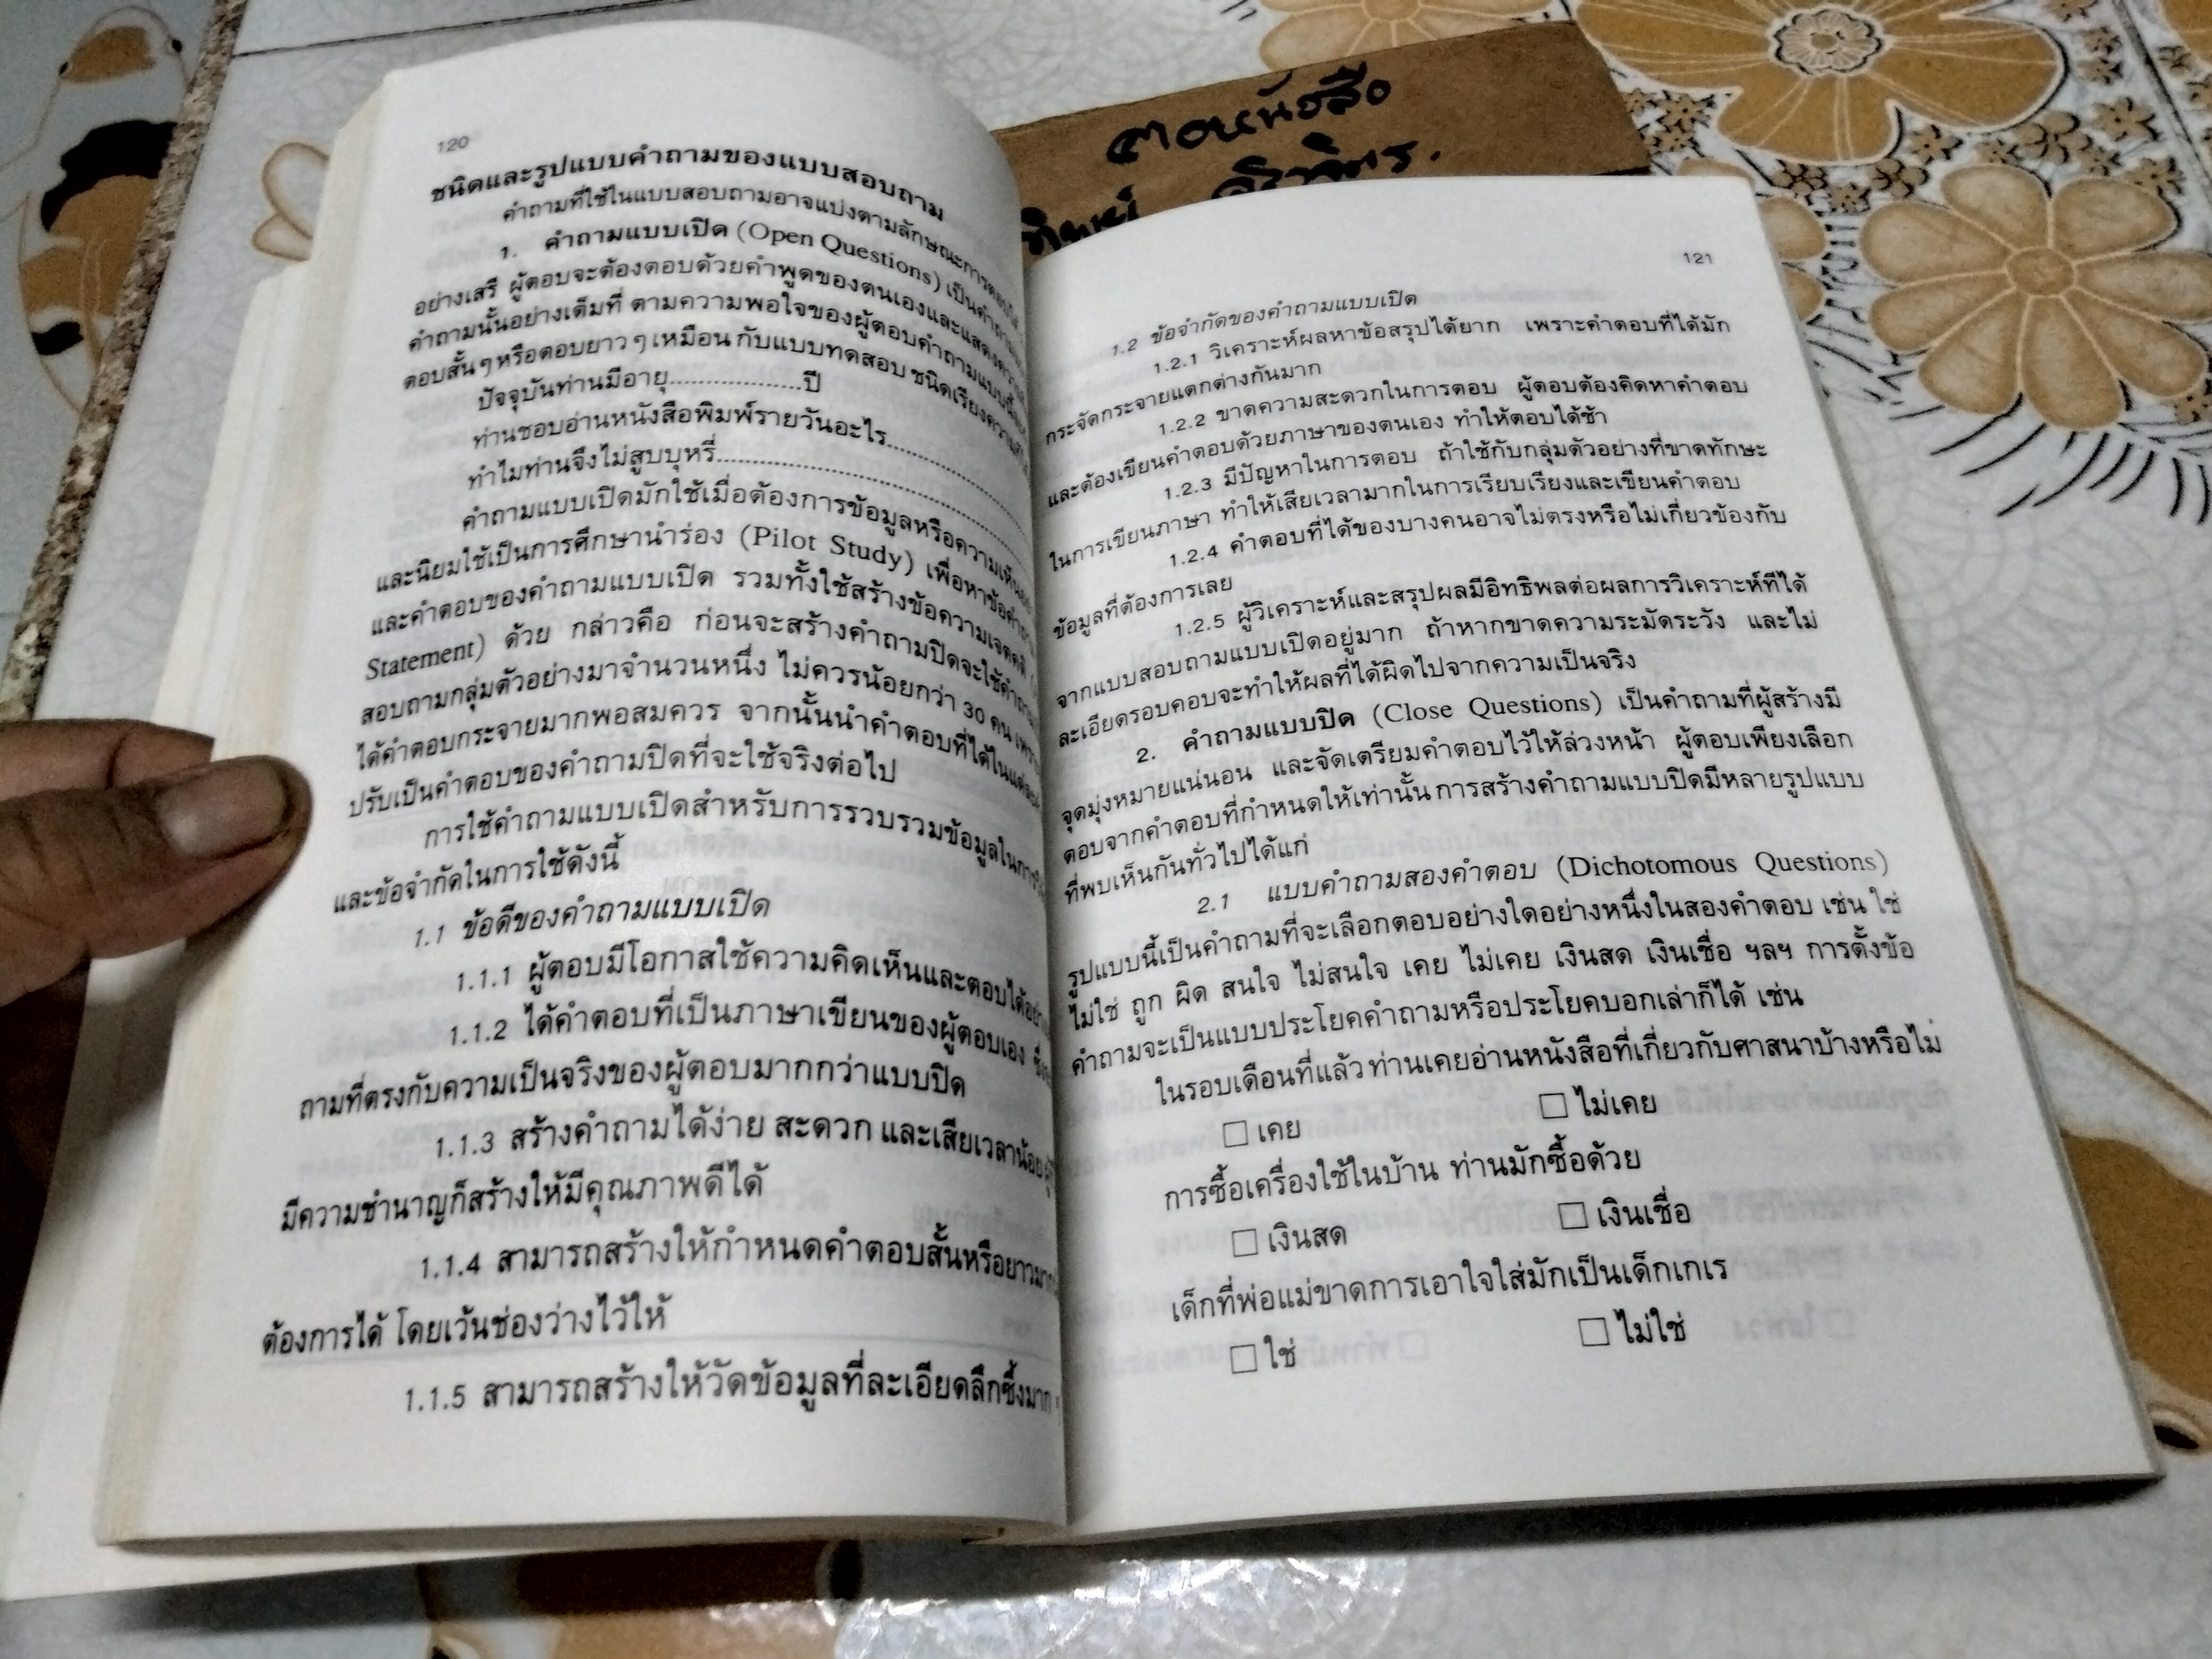 120
ชนิดและรูปแบบคำถามของแบบสอบถาม
คำถามที่ใช้ในแบบสอบถามอาจแบ่งตามลักษณะการตอบได้
1. คำถามแบบเปิด (Open Questions) เป็นคำถาม
อย่างเสรี ผู้ตอบจะต้องตอบด้วยคำพูดของตนเองและแสดงความ
คำถามนั้นอย่างเต็มที่ ตามความพอใจของผู้ตอบคำถามแบบนี้
ตอบสั้น ๆ หรือตอบยาว ๆ เหมือน กับแบบทดสอบ ชนิดเรียงความ
ปัจจุบันท่านมีอายุ..................ปี
ท่านชอบอ่านหนังสือพิมพ์รายวันอะไร....................
ทำไมท่านจึงไม่สูบบุหรี่........................................
คำถามแบบเปิดมักใช้เมื่อต้องการข้อมูลหรือความเห็น
และนิยมใช้เป็นการศึกษานำร่อง (Pilot Study) เพื่อหาข้อคำถาม
และคำตอบของคำถามแบบเปิด รวมทั้งใช้สร้างข้อความเจตคติ
Statement) ด้วย กล่าวคือ ก่อนจะสร้างคำถามปิดจะใช้คำถาม
สอบถามกลุ่มตัวอย่างมาจำนวนหนึ่ง ไม่ควรน้อยกว่า 30 คน เพราะ
ได้คำตอบกระจายมากพอสมควร จากนั้นนำคำตอบที่ได้ในแต่ละ
ปรับเป็นคำตอบของคำถามปิดที่จะใช้จริงต่อไป
การใช้คำถามแบบเปิดสำหรับการรวบรวมข้อมูลในการ
และข้อจำกัดในการใช้ดังนี้
1.1 ข้อดีของคำถามแบบเปิด
1.1.1 ผู้ตอบมีโอกาสใช้ความคิดเห็นและตอบได้อย่าง
1.1.2 ได้คำตอบที่เป็นภาษาเขียนของผู้ตอบเอง
ถามที่ตรงกับความเป็นจริงของผู้ตอบมากกว่าแบบปิด
1.1.3 สร้างคำถามได้ง่าย สะดวก และเสียเวลาน้อย
มีความชำนาญก็สร้างให้มีคุณภาพดีได้
1.1.4 สามารถสร้างให้กำหนดคำตอบสั้นหรือยาว
ต้องการได้ โดยเว้นช่องว่างไว้ให้
1.1.5 สามารถสร้างให้วัดข้อมูลที่ละเอียดลึกซึ้งมาก
ตอหนังสือ
121
1.2 ข้อจำกัดของคำถามแบบเปิด
1.2.1 วิเคราะห์ผลหาข้อสรุปได้ยาก เพราะคำตอบที่ได้มัก
กระจัดกระจายแตกต่างกันมาก
1.2.2 ขาดความสะดวกในการตอบ ผู้ตอบต้องคิดหาคำตอบ
และต้องเขียนคำตอบด้วยภาษาของตนเอง ทำให้ตอบได้ช้า
1.2.3 มีปัญหาในการตอบ ถ้าใช้กับกลุ่มตัวอย่างที่ขาดทักษะ
ในการเขียนภาษา ทำให้เสียเวลามากในการเรียบเรียงและเขียนคำตอบ
1.2.4 คำตอบที่ได้ของบางคนอาจไม่ตรงหรือไม่เกี่ยวข้องกับ
ข้อมูลที่ต้องการเลย
1.2.5 ผู้วิเคราะห์และสรุปผลมีอิทธิพลต่อผลการวิเคราะห์ที่ได้
จากแบบสอบถามแบบเปิดอยู่มาก ถ้าหากขาดความระมัดระวัง และไม่
ละเอียดรอบคอบจะทำให้ผลที่ได้ผิดไปจากความเป็นจริง
2. คำถามแบบปิด (Close Questions) เป็นคำถามที่ผู้สร้างมี
จุดมุ่งหมายแน่นอน และจัดเตรียมคำตอบไว้ให้ล่วงหน้า ผู้ตอบเพียงเลือก
ตอบจากคำตอบที่กำหนดให้เท่านั้น การสร้างคำถามแบบปิดมีหลายรูปแบบ
ที่พบเห็นกันทั่วไปได้แก่
2.1 แบบคำถามสองคำตอบ (Dichotomous Questions)
รูปแบบนี้เป็นคำถามที่จะเลือกตอบอย่างใดอย่างหนึ่งในสองคำตอบ เช่น ใช่
ไม่ใช่ ถูก ผิด สนใจ ไม่สนใจ เคย ไม่เคย เงินสด เงินเชื่อ ฯลฯ การตั้งข้อ
คำถามจะเป็นแบบประโยคคำถามหรือประโยคบอกเล่าก็ได้ เช่น
ในรอบเดือนที่แล้ว ท่านเคยอ่านหนังสือที่เกี่ยวกับศาสนาบ้างหรือไม่
☐ เคย ☐ ไม่เคย
การซื้อเครื่องใช้ในบ้าน ท่านมักซื้อด้วย
☐ เงินสด ☐ เงินเชื่อ
เด็กที่พ่อแม่ขาดการเอาใจใส่มักเป็นเด็กเกเร
☐ ใช่ ☐ ไม่ใช่